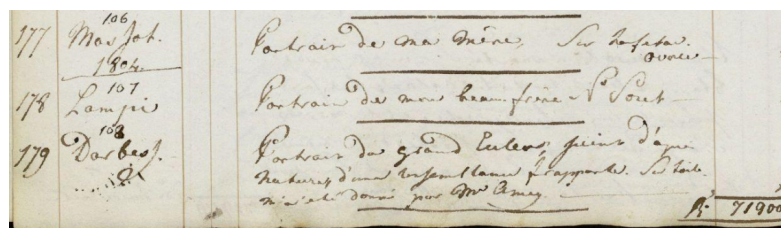 106
177 Mos Joh. Portrait de ma Mère, Sur
ovale
1804.
107
178 Lampi Portrait de mon beau frère
108
179 Darbes J. Portrait du grand Euler, peint d'après
nature, d'une ressemblance frappante. Sur toile.
m'a été donné par Mr
71900